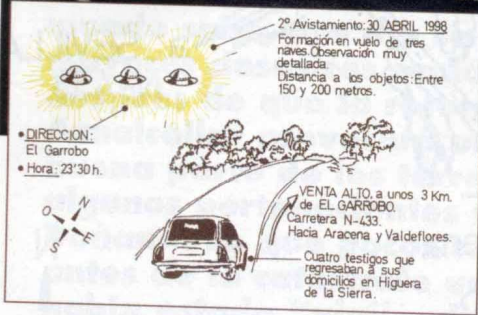 2º.Avistamiento: 30 ABRIL 1998
Formación en vuelo de tres
naves.Observación muy
detallada.
Distancia a los objetos: Entre
150 y 200 metros.
• DIRECCION:
El Garrobo
• Hora: 23'30 h.
O
N
S
E
VENTA ALTO, a unos 3 Km.
de EL GARROBO.
Carretera N-433.
Hacia Aracena y Valdeflores.
Cuatro testigos que
regresaban a sus
domicilios en Higuera
de la Sierra.